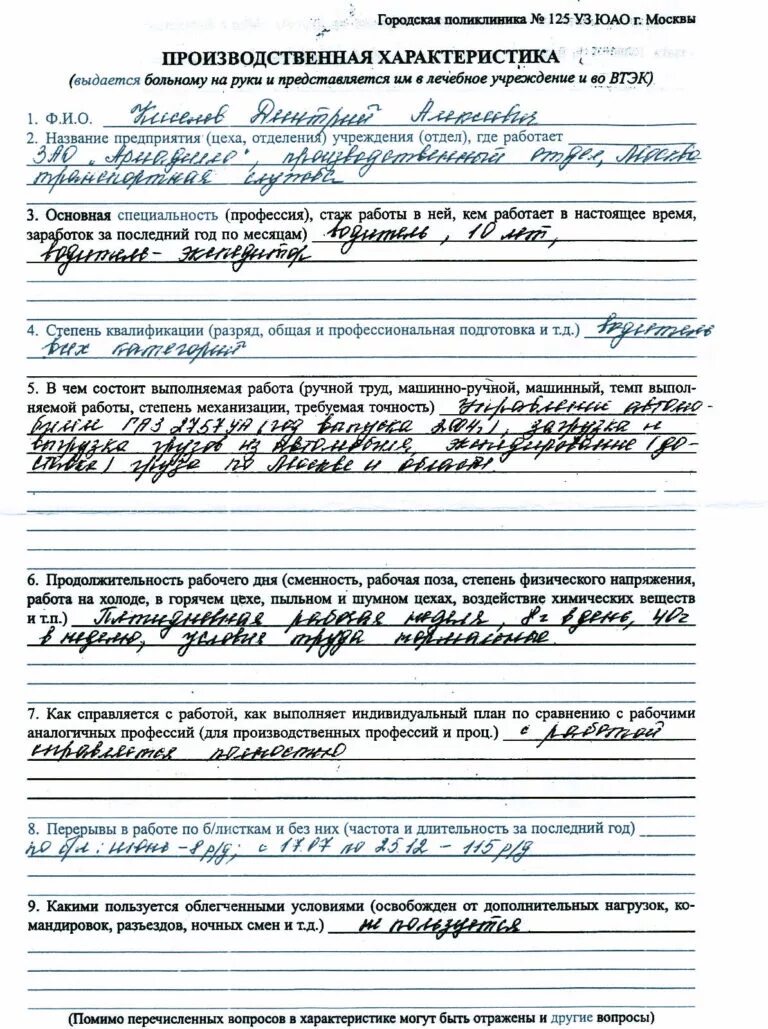 Городская поликлиника № 125 УЗ ЮАО г. Москвы
ПРОИЗВОДСТВЕННАЯ ХАРАКТЕРИСТИКА
(выдается больному на руки и представляется им в лечебное учреждение и во ВТЭК)
1. Ф.И.О. Киселов Дмитрий Алексеевич
2. Название предприятия (цеха, отделения) учреждения (отдел), где работает
ЗАО , производственный отдел, Москва
транспортная служба
3. Основная специальность (профессия), стаж работы в ней, кем работает в настоящее время,
заработок за последний год по месяцам) водитель, 10 лет,
водитель- экспедитор
4. Степень квалификации (разряд, общая и профессиональная подготовка и т.д.) водитель
всех категорий
5. В чем состоит выполняемая работа (ручной труд, машинно-ручной, машинный, темп выпол-
няемой работы, степень механизации, требуемая точность) Управление автомо-
билем ГАЗ 2757УА (год выпуска 2004г), загрузка и
выгрузка грузов из автомобиля, экспедирование (до-
ставка) груза по Москве и области.
6. Продолжительность рабочего дня (сменность, рабочая поза, степень физического напряжения,
работа на холоде, в горячем цехе, пыльном и шумном цехах, воздействие химических веществ
и т.п.) Пятидневная рабочая неделя, 8ч в день, 40ч
в неделю, условия труда нормальные
7. Как справляется с работой, как выполняет индивидуальный план по сравнению с рабочими
аналогичных профессий (для производственных профессий и проц.) с работой
справляется полностью
8. Перерывы в работе по б/листкам и без них (частота и длительность за последний год)
по б/л: июнь - 8 р/д; с 17.07 по 25.12 - 115 р/д
9. Какими пользуется облегченными условиями (освобожден от дополнительных нагрузок, ко-
мандировок, разъездов, ночных смен и т.д.) не пользуется
(Помимо перечисленных вопросов в характеристике могут быть отражены и другие вопросы)